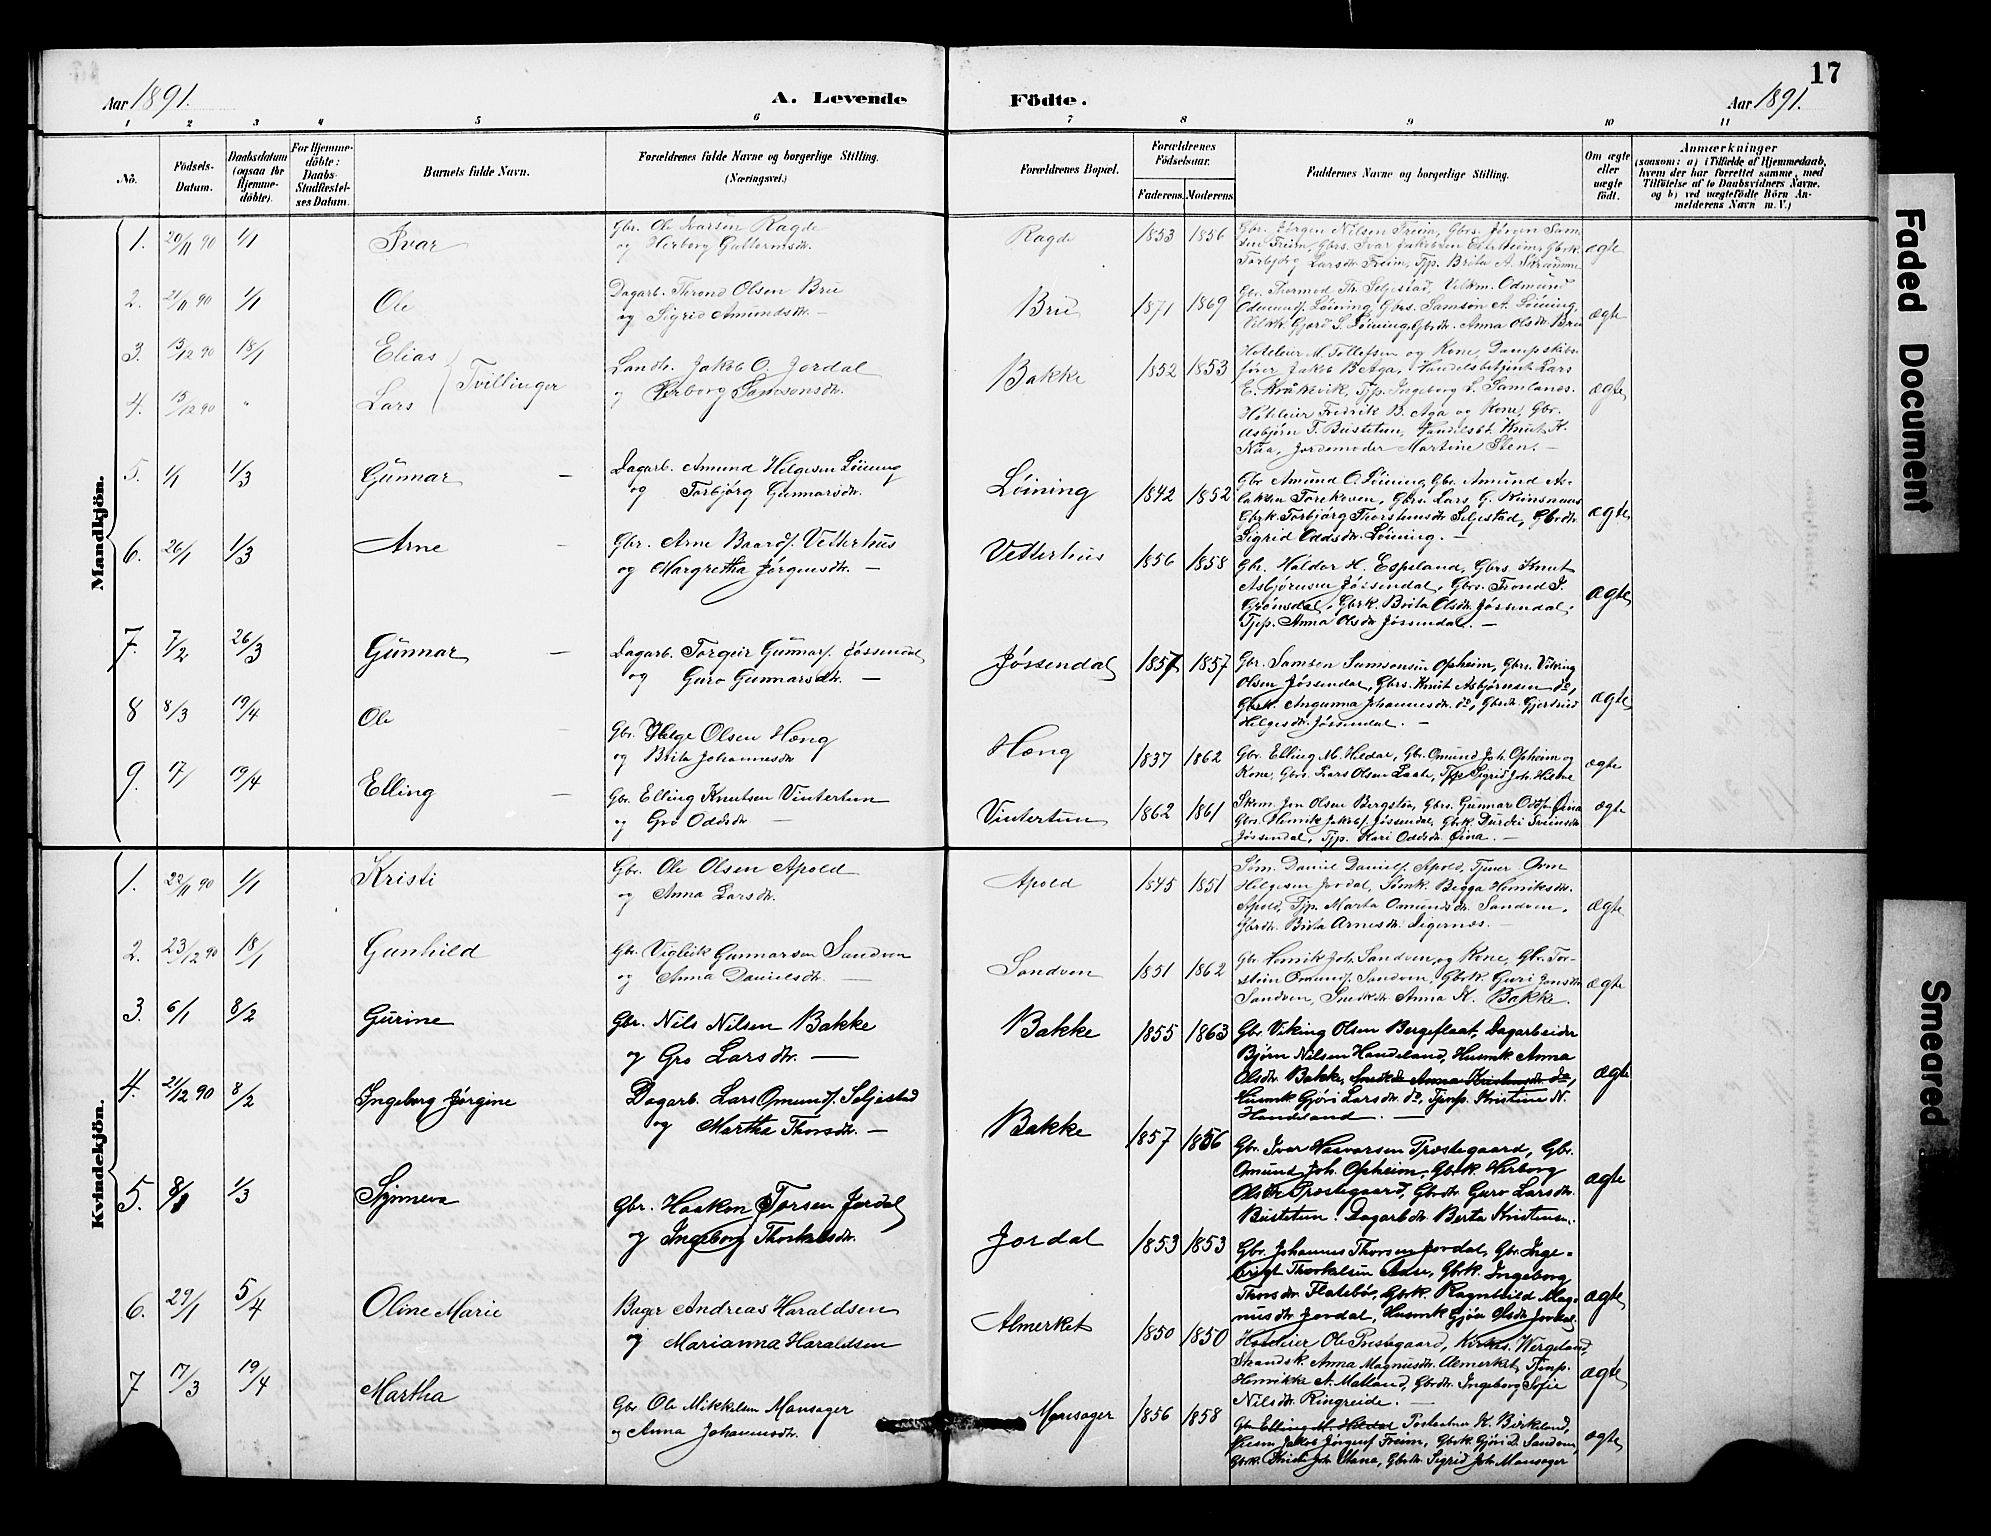 17
Aar 1891.
A. Levende Födte.
Aar 1891.
1 2 3 4 5 6 7 8 9 10 11
No.
Födsels-Datum.
Daabsdatum (ogsaa for Hjemme-döbte).
For Hjemme-döbte: Daabs-Stadfæstel-ses Datum.
Barnets fulde Navn.
Forældrenes fulde Navne og borgerlige Stilling. (Næringsvei.)
Forældrenes Bopæl.
Forældrenes Födselsaar.
Faderens. Moderens.
Faddernes Navne og borgerlige Stilling.
Om ægte eller uægte födt.
Anmærkninger
(saasom: a) i Tilfælde af Hjemmedaab,
hvem der har forrettet samme, med
Tilföielse af to Daabsvidners Navne,
og b) ved uægtefödte Börn An-
melderens Navn m. V.)
Mandkjön.
1. 20/11 90 1/1 Ivar Gbr. Ole Ivarsen Ragde
og Herborg Guttormsdtr. Ragde 1853 1856
Gbr. Jörgen Nilsen Freim, Gbrs. Jören Sam-
sen Freim, Gbrs. Ivar Jakobsen Eidesheim, Gbrk.
Torbjörg Larsdtr. Freim, Tjp. Brita A. Skramme
ægte
2. 21/11 90 1/1 Ole Dagarb. Thrond Olsen Bru
og Sigrid Amundsdtr. — Bru 1871 1869
Gbr. Thormod Th. Seljestad, Odmund
Odmunds. Löining, Gbrs. Samson A. Löining,
Gjörd S. Löining, Gbrdtr. Anna Olsdtr. Bru
ægte
3. 13/12 90 18/1 Elias
4. 13/12 90 " Lars Tvillinger
Landh. Jakob O. Jordal
og Herborg Samsonsdtr. Bakke 1852 1853
Hoteleier M. Tollefsen og Kone, Dampskibs-
förer Jakob B. Aga, Handelsbetjent Lars
E. Kråkevik, Tjp. Ingeborg L. Samlanes.
Hoteleier Fredrik B. Aga og Kone, Gbr.
Asbjörn T. Bustetun, Handelsbt. Knut K.
Naa, Jordemoder Martine Sten. —
ægte
5. 1/1 1/3 Gunnar — Dagarb. Amund Helgesen Löining
og Torbjörg Gunnarsdtr. Löining 1842 1852
Gbr. Amund O. Löining, Gbr. Amund As-
laksen, Gbrs. Lars G.
Gbrk. Torbjörg Thorsteinsdtr. Seljestad, Gbrdtr.
Sigrid Oddsdtr. Löining. —
ægte
6. 26/1 1/3 Arne Gbr. Arne Baards. Vetterhus
og Margretha Jörgensdtr. — Vetterhus 1856 1858
Gbr. Haldor H. Espeland, Gbrs. Knut
Asbjörnsen Jössendal, Gbrs. Trond I.
Grönsdal, Gbrk. Brita Olsdtr. Jössendal,
Tjp. Anna Olsdtr. Jössendal. —
ægte
7. 7/2 26/3 Gunnar — Dagarb. Torgeir Gunnars. Jössendal
og Guro Gunnarsdtr. — Jössendal 1857 1857
Gbr. Samson Samsonsen Opheim, Gbrs. Viking
Olsen Jössendal, Gbrs. Knut Asbjörnsen do,
Gbrk. Angunna Johannesdtr. do, Gbrdtr. Gjertrud
Helgesdtr. Jössendal. —
ægte
8 8/3 19/4 Ole Gbr. Helge Olsen Hæng
og Brita Johannesdtr. Hæng 1837 1862
Gbr. Elling M. Hildal, Gbr. Omund Joh. Opheim og
Kone, Gbrs. Lars Olsen, Tjp. Sigrid Joh.
ægte
9. 17/ 19/4 Elling — Gbr. Elling Knutsen Vintertun
og Gro Oddsdtr. — Vintertun 1862 1861
Skom. Jon Olsen, Gbrs. Gunnar Odds.
Gbrs. Henrik Jakobs. Jössendal, Gbrk. Durdei Sveinsdtr.
Jössendal, Tjp. Kari Oddsdtr. —
ægte
Kvindekjön.
1. 22/11 90 1/1 Kristi Gbr. Ole Olsen Apold
og Anna Larsdtr. Apold 1845 1851
Söm. Daniel Daniels. Apold, Tjener Orm
Helgesen Jordal, Sömk. Begga Henriksdtr.
Apold, Tjp. Marta Omundsdtr. Sandven,
Gbrdtr. Brita Arnesdtr. Digernes. —
ægte
2. 23/12 90 18/1 Gunhild Gbr. Vigleik Gunnarsen Sandven
og Anna Danielsdtr. — Sandven 1851 1862
Gbr. Henrik Joh. Sandven og Kone, Gbr. Tor-
stein Omunds. Sandven, Gbrk. Guri Jonsdtr.
Sandven, Snedkdtr. Anna K. Bakke.
ægte
3. 6/1 8/2 Gurine Gbr. Nils Nilsen Bakke
og Gro Larsdtr. — Bakke 1855 1863
Gbr. Viking Olsen Bergeflaat, Dagarbeider
Björn Nilsen Handeland, Husmk. Anna
Olsdtr. Bakke, Snedkdtr Anna Kristensdtr. do,
Husmk. Gjöri Larsdtr. do, Tjenp. Kristine N.
Handeland. —
ægte
4. 21/12 90 8/2 Ingeborg Jörgine Dagarb. Lars Omunds. Seljestad
og Martha Thorsdtr. — Bakke 1857 1856
Gbr. Ivar Haavarsen Præstegaard, Gbr.
Omund Joh. Opheim, Gbrk. Herborg
Olsdtr. Præstegaard, Gbrdtr. Guro Larsdtr.
Bustetun. Dagarbdtr. Berta Kristensen.
ægte
5. 8/1 1/3 Synneva Gbr. Haakon Torsen Jordal
og Ingeborg Thorkelsdtr. Jordal 1853 1853
Gbr. Johannes Thorsen Jordal, Gbr. Inge-
brigt Thorkelsen Aase, Gbrk. Ingeborg
Thorsdtr. Flatebö, Gbrk. Ragnhild Mag-
nusdtr. Jordal, Husmk. Gjöa Olsdtr. Jordal.
ægte
6. 29/1 5/4 Oline Marie Bager Andreas Haraldsen
og Marianna Haraldsen Almerket 1850 1850
Hoteleier Ole Præstegaard, Kirkes. Wergeland,
Strandsk. Anna Magnusdtr. Almerket, Tjenp.
Henrikke A. Matland, Gbrdtr. Ingeborg Sofie
Nilsdtr. Ringreide. —
ægte
7 17/3 19/4 Martha Gbr. Ole Mikkelsen Mansager
og Anna Johannesdtr. Mansager 1856 1858
Gbr. Elling M. Hildal, K. Birkeland,
Husm. Jakob Jörgens. Freim, Gbrk. Gjöri D. Sandven,
Gbrk. Joh., Gbrdtr. Sigrid Joh. Mansager
ægte
Faded Document
Smeared